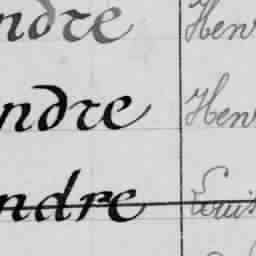 ndre Hen
ndre Hen
ndre Louis